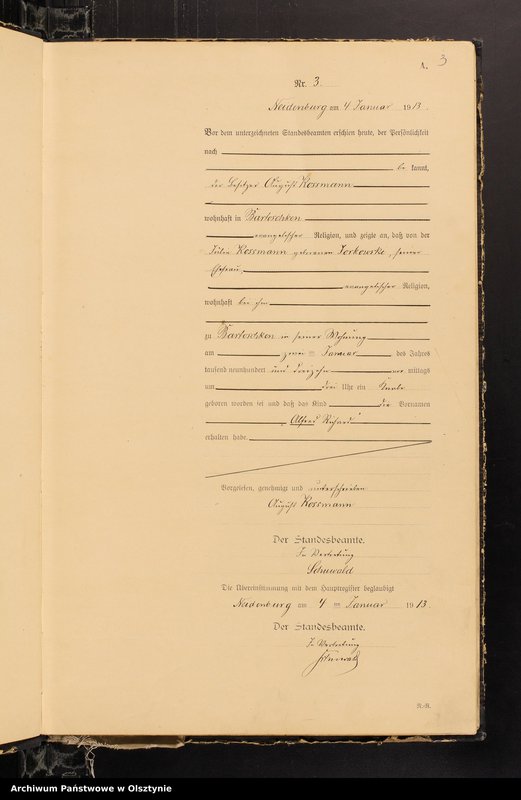 A. 3
Nr. 3.
Neidenburg am 4 Januar 1913.
Vor dem unterzeichneten Standesbeamten erschien heute, der Persönlichkeit
nach
be kannt,
der Besitzer August Kossmann
wohnhaft in Bartoschken
evangelischer Religion, und zeigte an, daß von der
Kossmann geborenen seiner
Ehefrau,
evangelischer Religion,
wohnhaft bei ihm
zu Bartoschken in seiner Wohnung
am zweiten Januar des Jahres
tausend neunhundert und dreizehn vor mittags
um drei Uhr ein Knabe
geboren worden sei und daß das Kind die Vornamen
Alfred Richard
erhalten habe.
Vorgelesen, genehmigt und unterschrieben
August Kossmann
Der Standesbeamte.
In Vertretung
Die Übereinstimmung mit dem Hauptregister beglaubigt
Neidenburg am 4 ten Januar 1913.
Der Standesbeamte.
In Vertretung
Archiwum Państwowe w Olsztynie